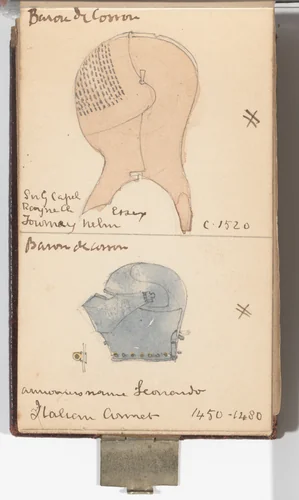 Baron de Cosson
Sir G Capel
Rayne Ch Essex
Tourney helm C. 1520
Baron de Cosson
armourers name Leonardo
Italian Armet 1450-1480